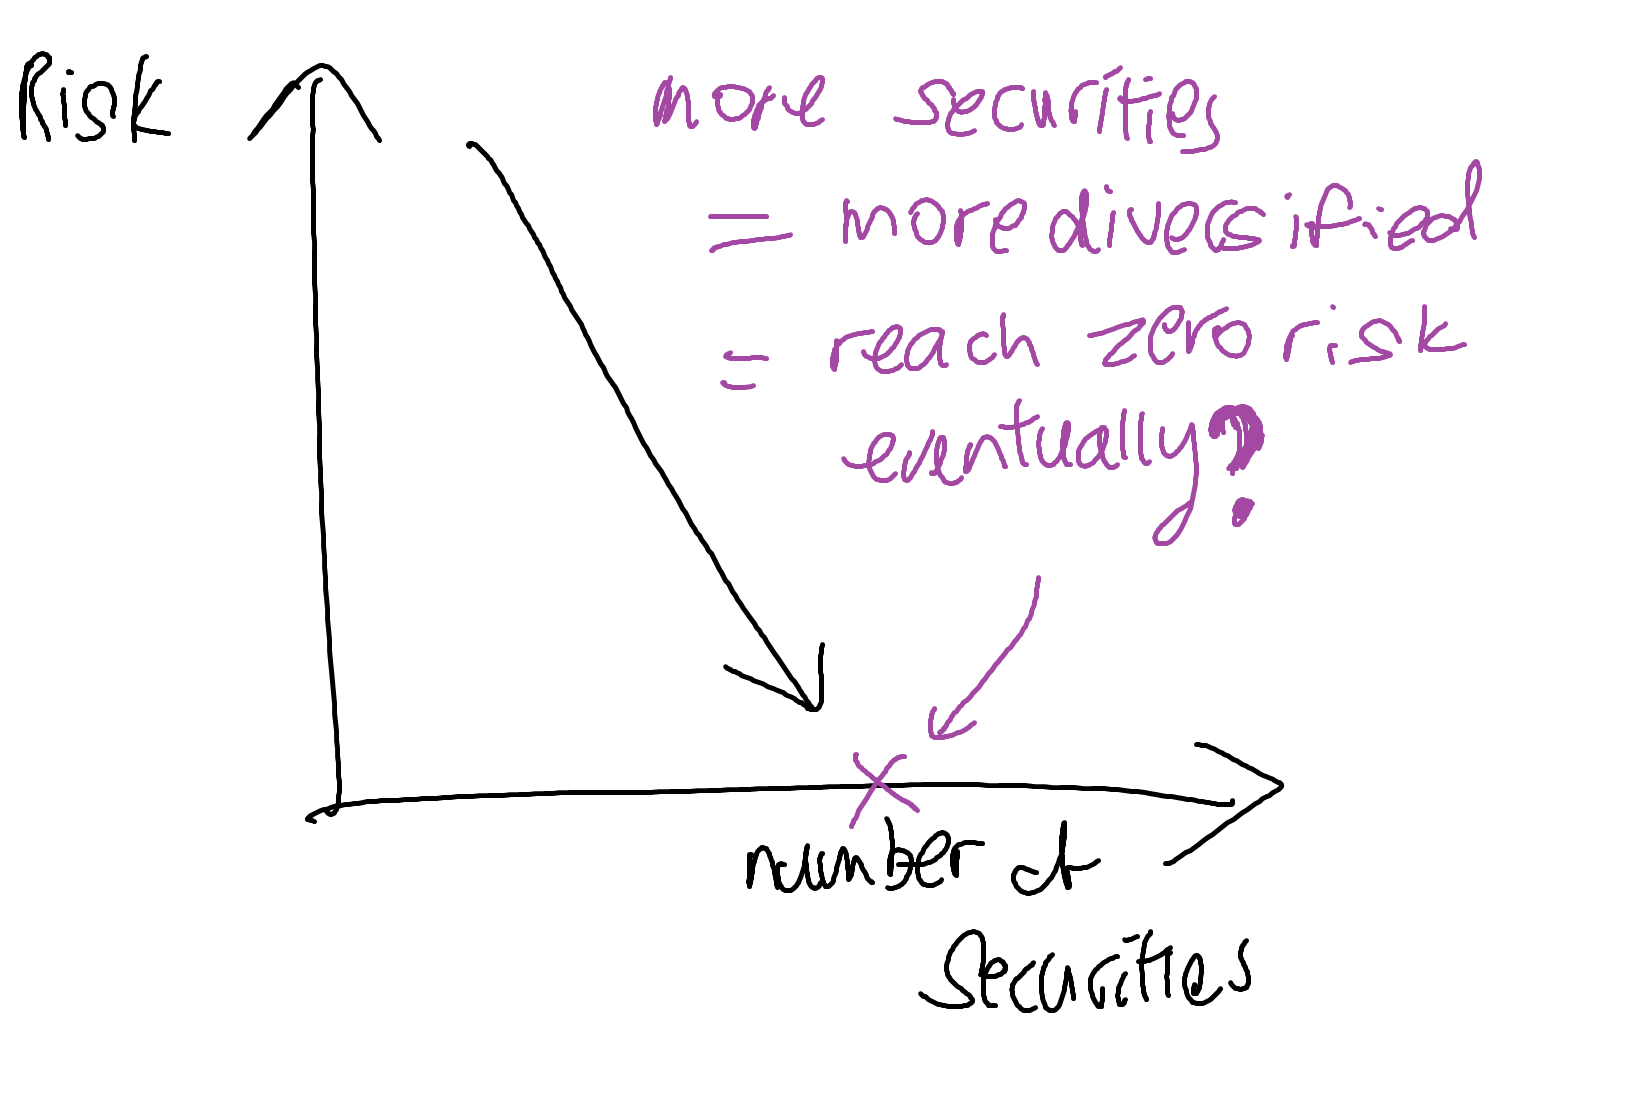 Risk
more securities
= more diversified
= reach zero risk
eventually?
number of
Securities